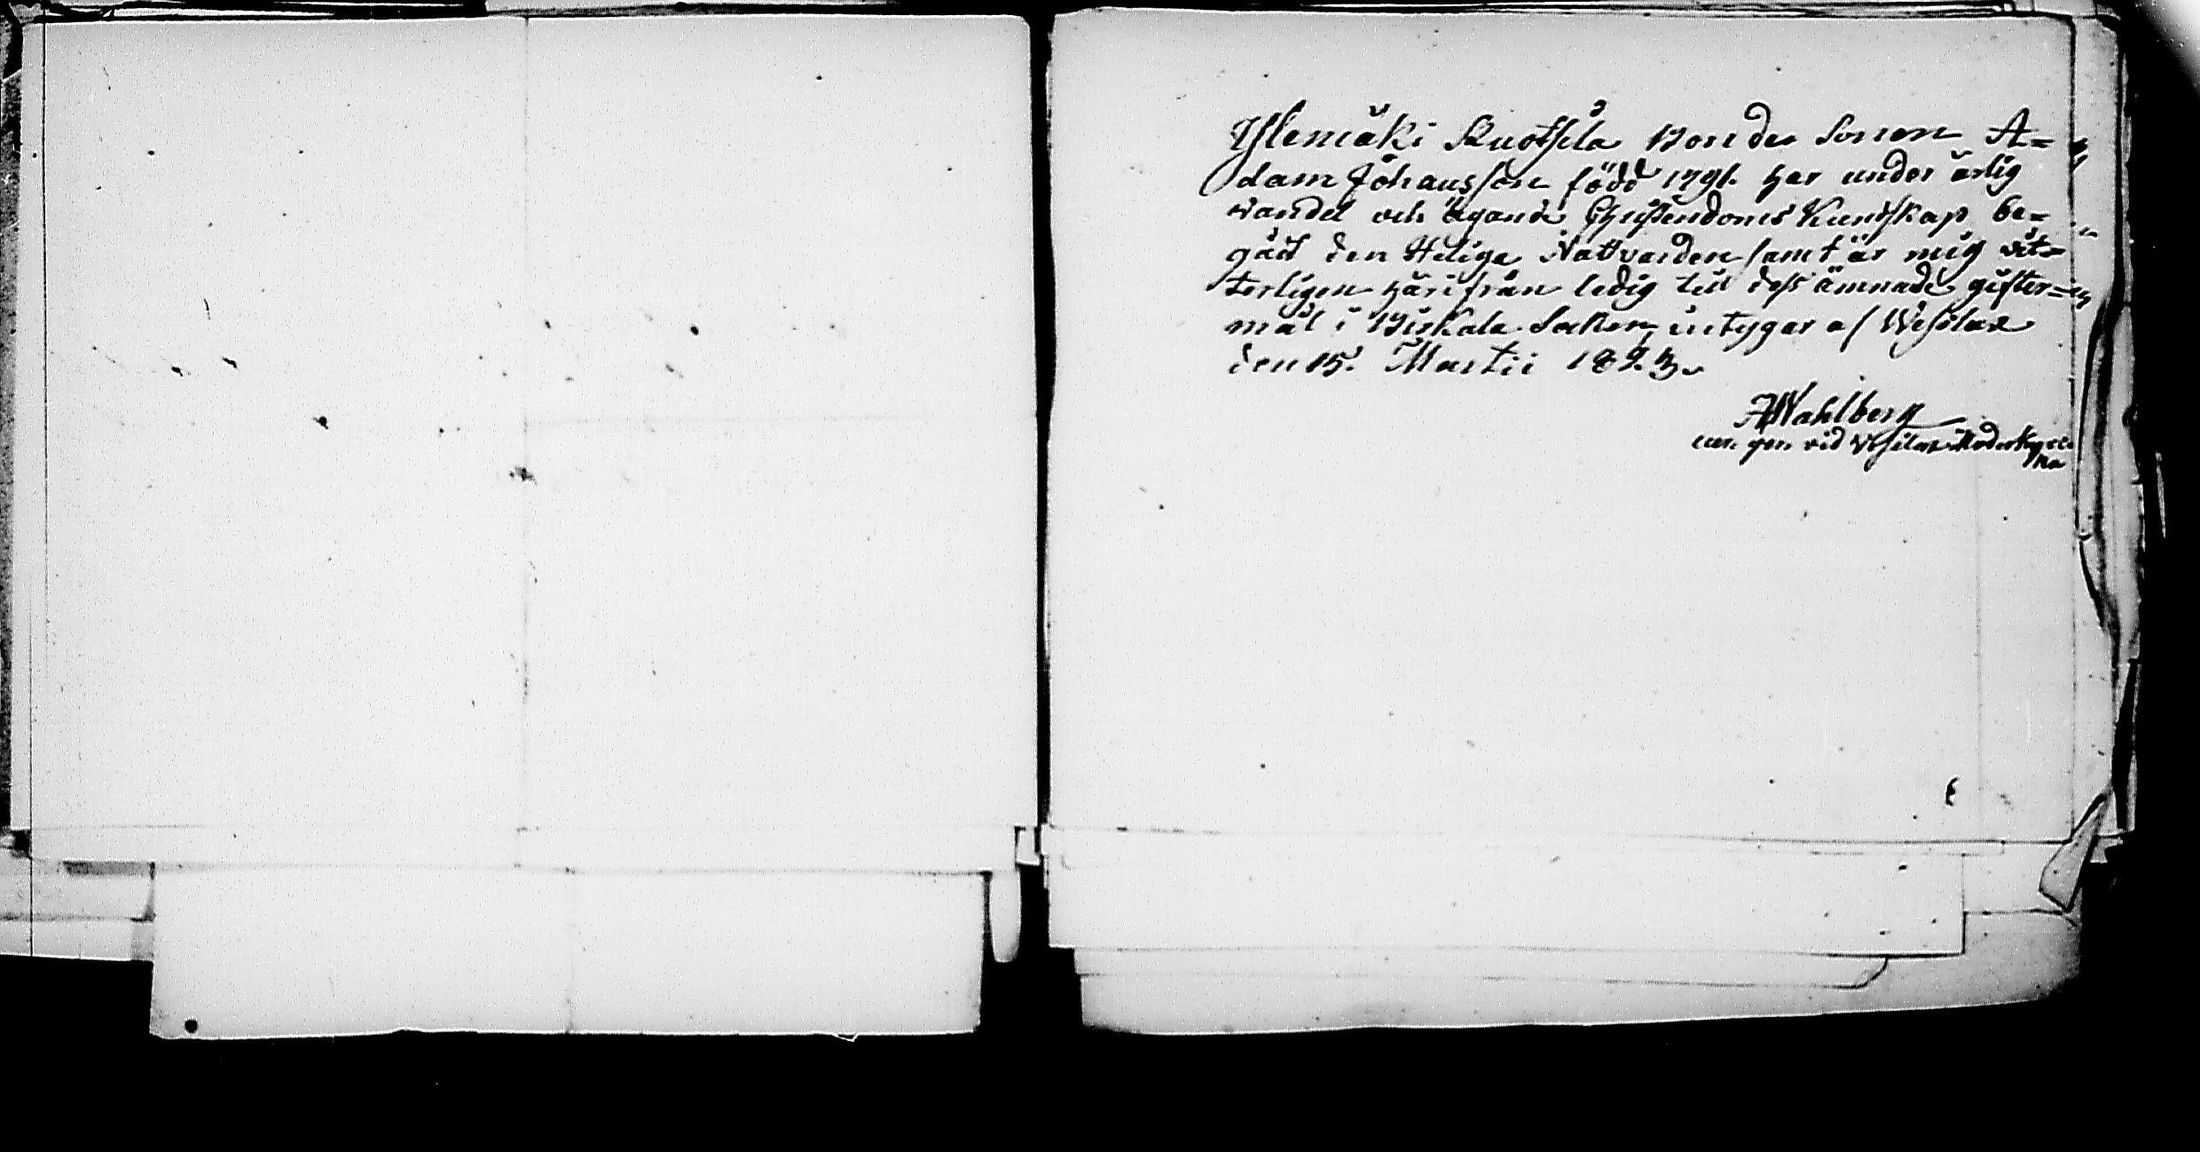 Ylemäki Ruotsila Bonde Sonen A=
dam Johansson född 1791. har under ärlig
vandel och ägande Christendoms Kundskap be=
gådt den Heliga Nattvarden samt är mig vit=
terligen härifrån ledig till dess ämnade gifter=
mål i Birkala Socken, intygar af Wesilax
den 15. Martii 1823.
A Wahlberg
vid Wesilax Moderkyrc
ka